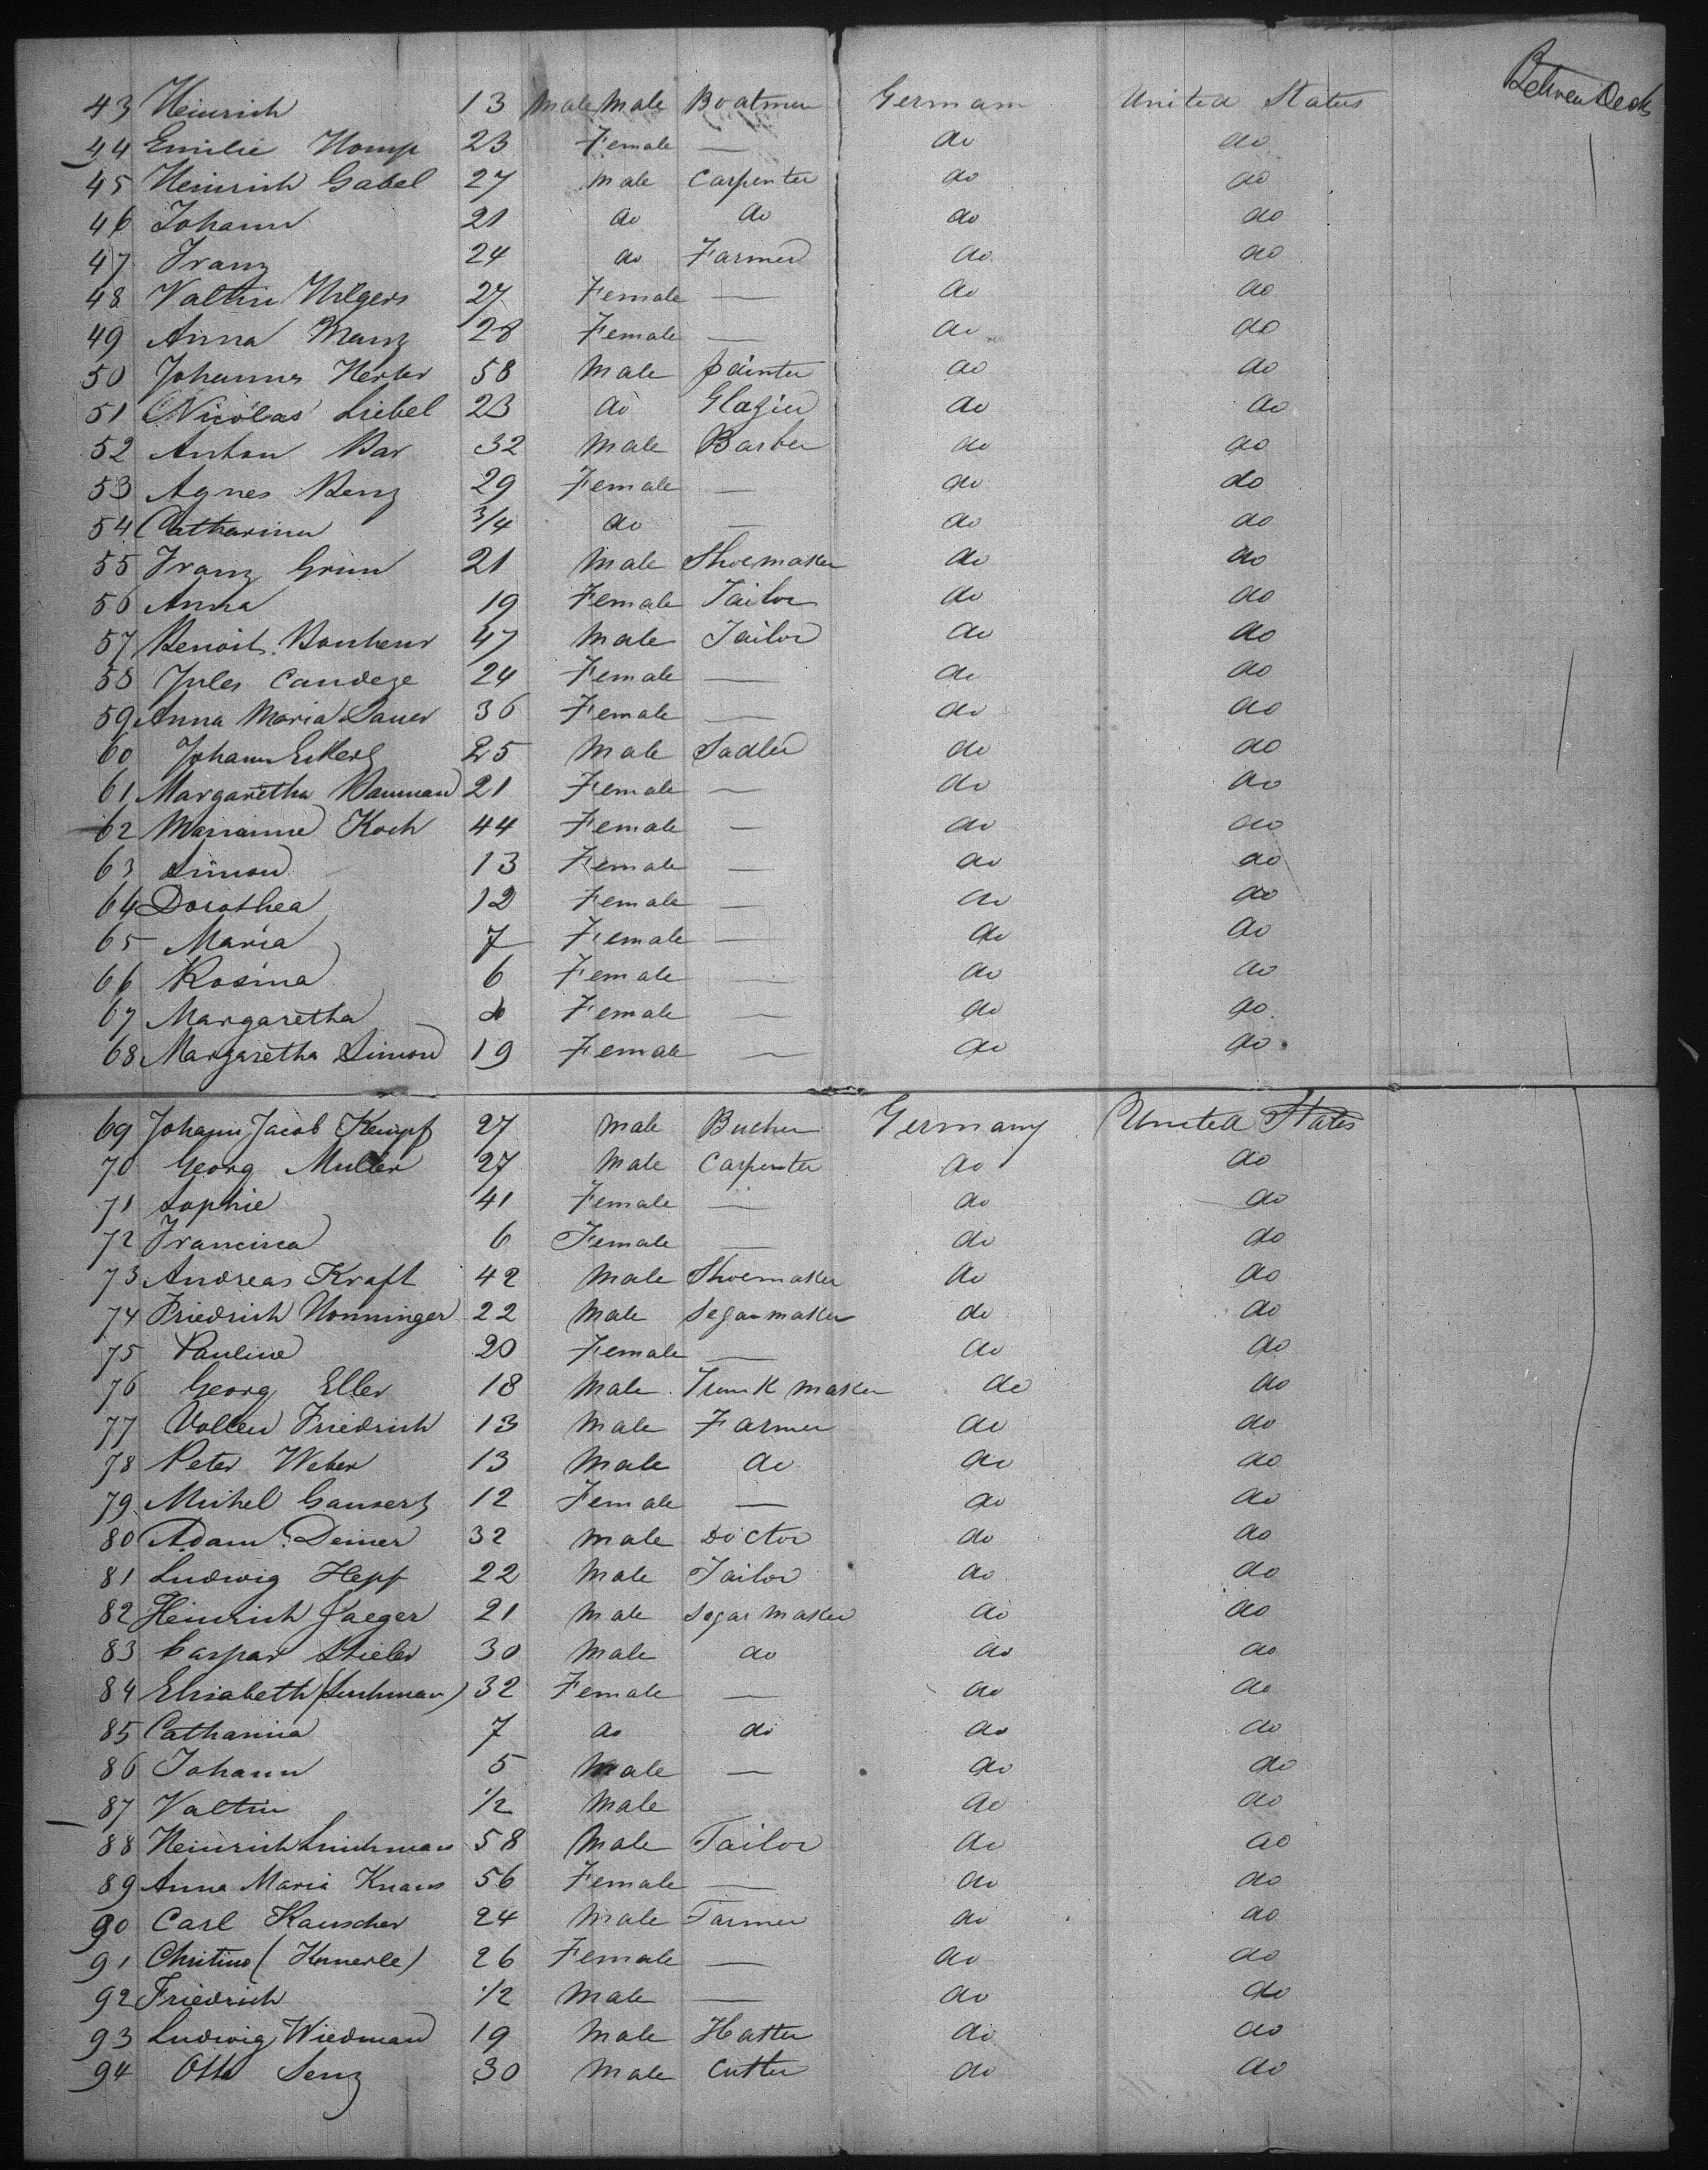 Between Decks
43 Heinrich 13 Male Male Boatman German United States
44 Emilie Homp 23 Female — do do
45 Heinrich Gabel 27 Male Carpenter do do
46 Johann 21 do do do do
47 Franz 24 do Farmer do do
48 Valtin Hilgers 27 Female — do do
49 Anna Manz 28 Female — do do
50 Johannes Herter 58 Male painter do do
51 Nicolas Liebel 23 do Glazier do do
52 Anton Bar 32 Male Barber do do
53 Agnes Benz 29 Female — do do
54 Catharina 3/4 do — do do
55 Franz Grun 21 Male Shoemaker do do
56 Anna 19 Female Tailor do do
57 Benoit Bonheur 47 Male Tailor do do
58 Jules Candeze 24 Female — do do
59 Anna Maria Sauer 36 Female — do do
60 Johann Eckert 25 Male Sadler do do
61 Margaretha Bauman 21 Female — do do
62 Marianne Koch 44 Female — do do
63 Simon 13 Female — do do
64 Dorothea 12 Female — do do
65 Maria 7 Female — do do
66 Rosina 6 Female — do do
67 Margaretha Female — do do
68 Margaretha Simon 19 Female — do do
69 Johann Jacob Kempf 27 Male Bucher Germany United States
70 Georg Muller 27 Male Carpenter do do
71 Sophie 41 Female — do do
72 Francisca 6 Female — do do
73 Andreas Kraft 42 Male Shoemaker do do
74 Friedrich Nonninger 22 Male Segarmaker do do
75 Pauline 20 Female — do do
76 Georg Eller 18 Male Trunk maker do do
77 Friedrich 13 Male Farmer do do
78 Peter Weber 13 Male do do do
79 Michel Gansert 12 Female — do do
80 Adam Deiner 32 Male Doctor do do
81 Ludwig Hepf 22 Male Tailor do do
82 Heinrich Jaeger 21 Male Segar maker do do
83 Caspar Stieler 30 Male do do do
84 Elisabeth 32 Female — do do
85 Catharina 7 do do do do
86 Johann 5 Male — do do
87 Valtin 1/2 Male do do
88 Heinrich 58 Male Tailor do do
89 Anna Maria Knaus 56 Female — do do
90 Carl Kauscher 24 Male Farmer do do
91 Christine (Kunerle) 26 Female — do do
92 Friedrich 1/2 Male — do do
93 Ludwig Wiedman 19 Male Hatter do do
94 Otto Senz 30 Male Cutter do do